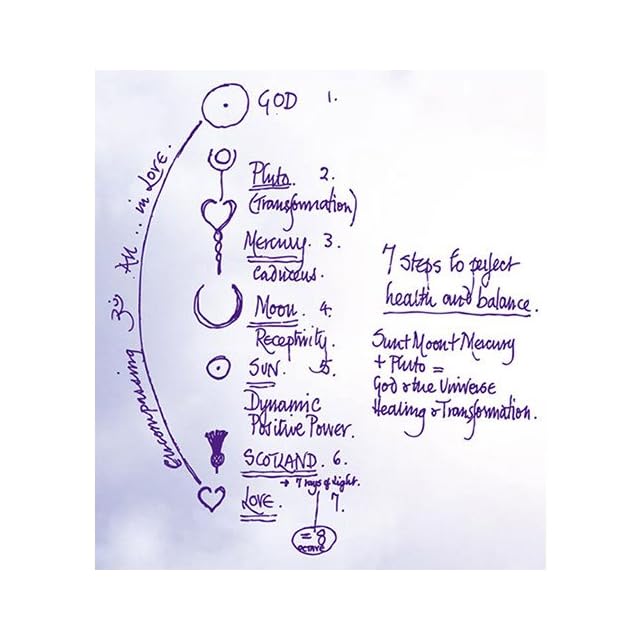 GOD 1.
Pluto. 2.
(Transformation)
Mercury. 3.
Caduceus.
Moon. 4.
Receptivity.
SUN. 5.
Dynamic
Positive Power.
SCOTLAND. 6.
→ 7 rays of light.
LOVE. 7.
= 8
OCTAVE
encompassing ॐ All ... in LOVE.
7 Steps to perfect
health and balance.
Sun + Moon + Mercury
+ Pluto =
God & the Universe
Healing & Transformation.